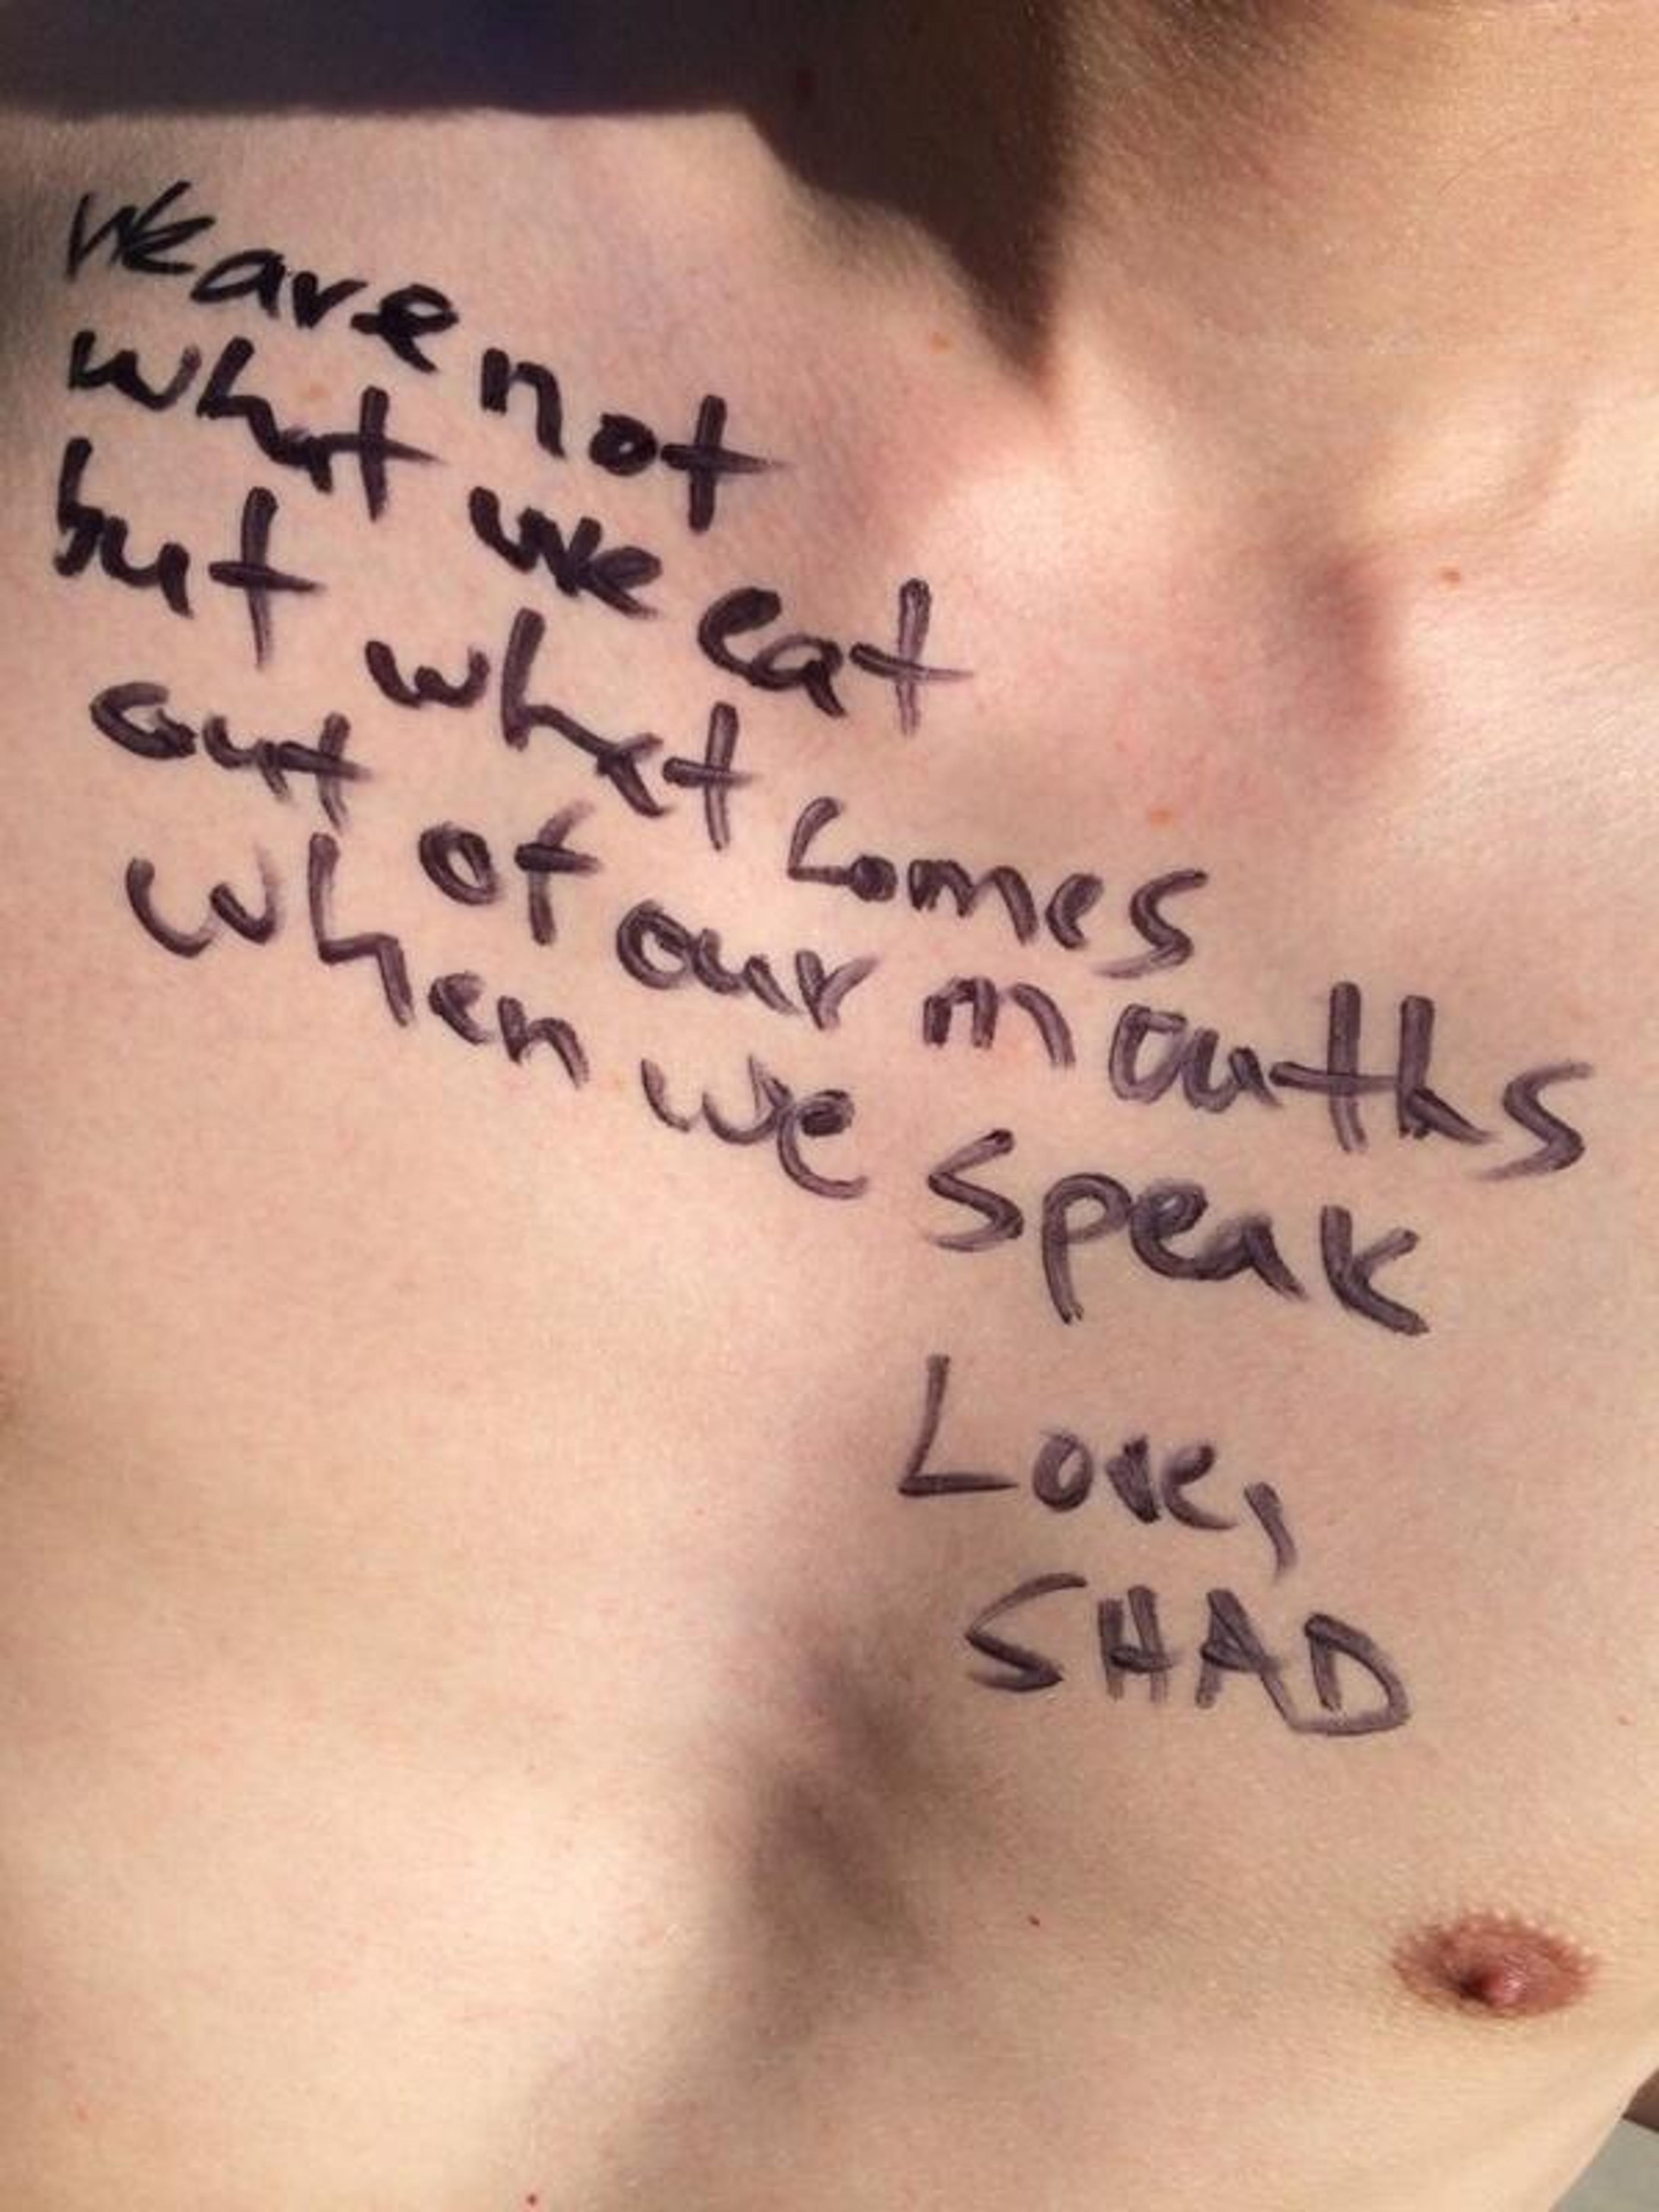 We are not
what we eat
but what comes
out of our mouths
when we speak
Love,
SHAD